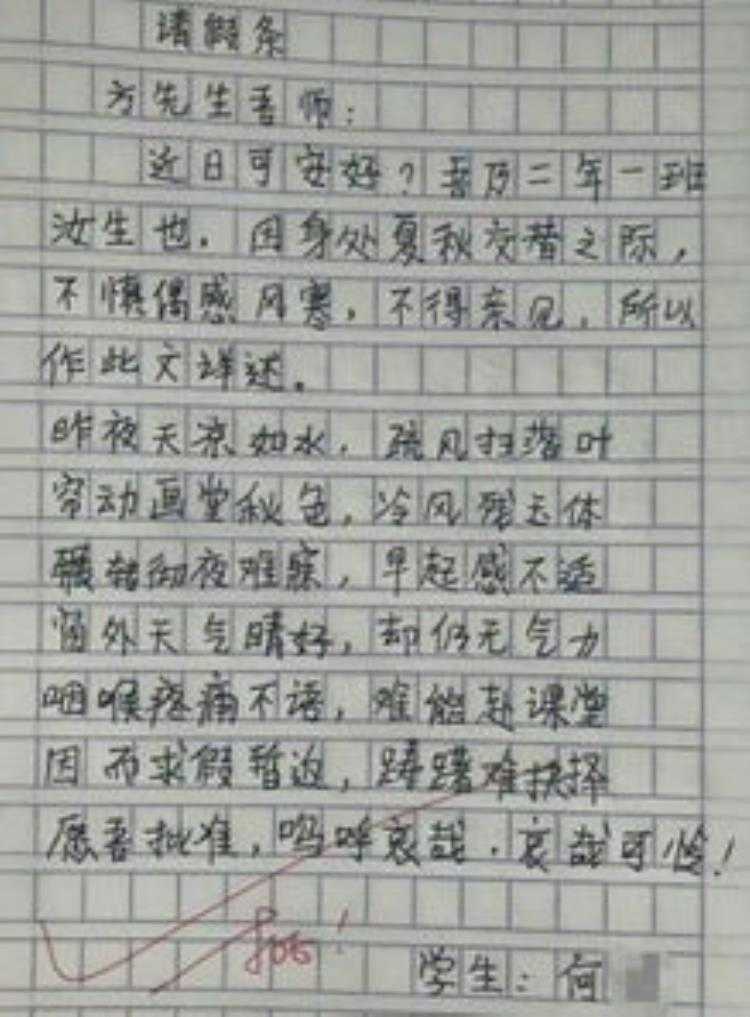 请假条
方先生吾师:
近日可安好?吾乃二年一班
汝生也。因身处夏秋交替之际,
不慎偶感风寒,不得亲见,所以
作此文详述。
昨夜天凉如水,疏风扫落叶
帘动画堂秋色,冷风残玉体
辗转彻夜难寐,早起感不适
窗外天气晴好,却仍无气力
咽喉疼痛不语,难能赴课堂
因而求假暂边,踌躇难抉择
愿吾批准,呜呼哀哉,哀哉可怜!
学生:何